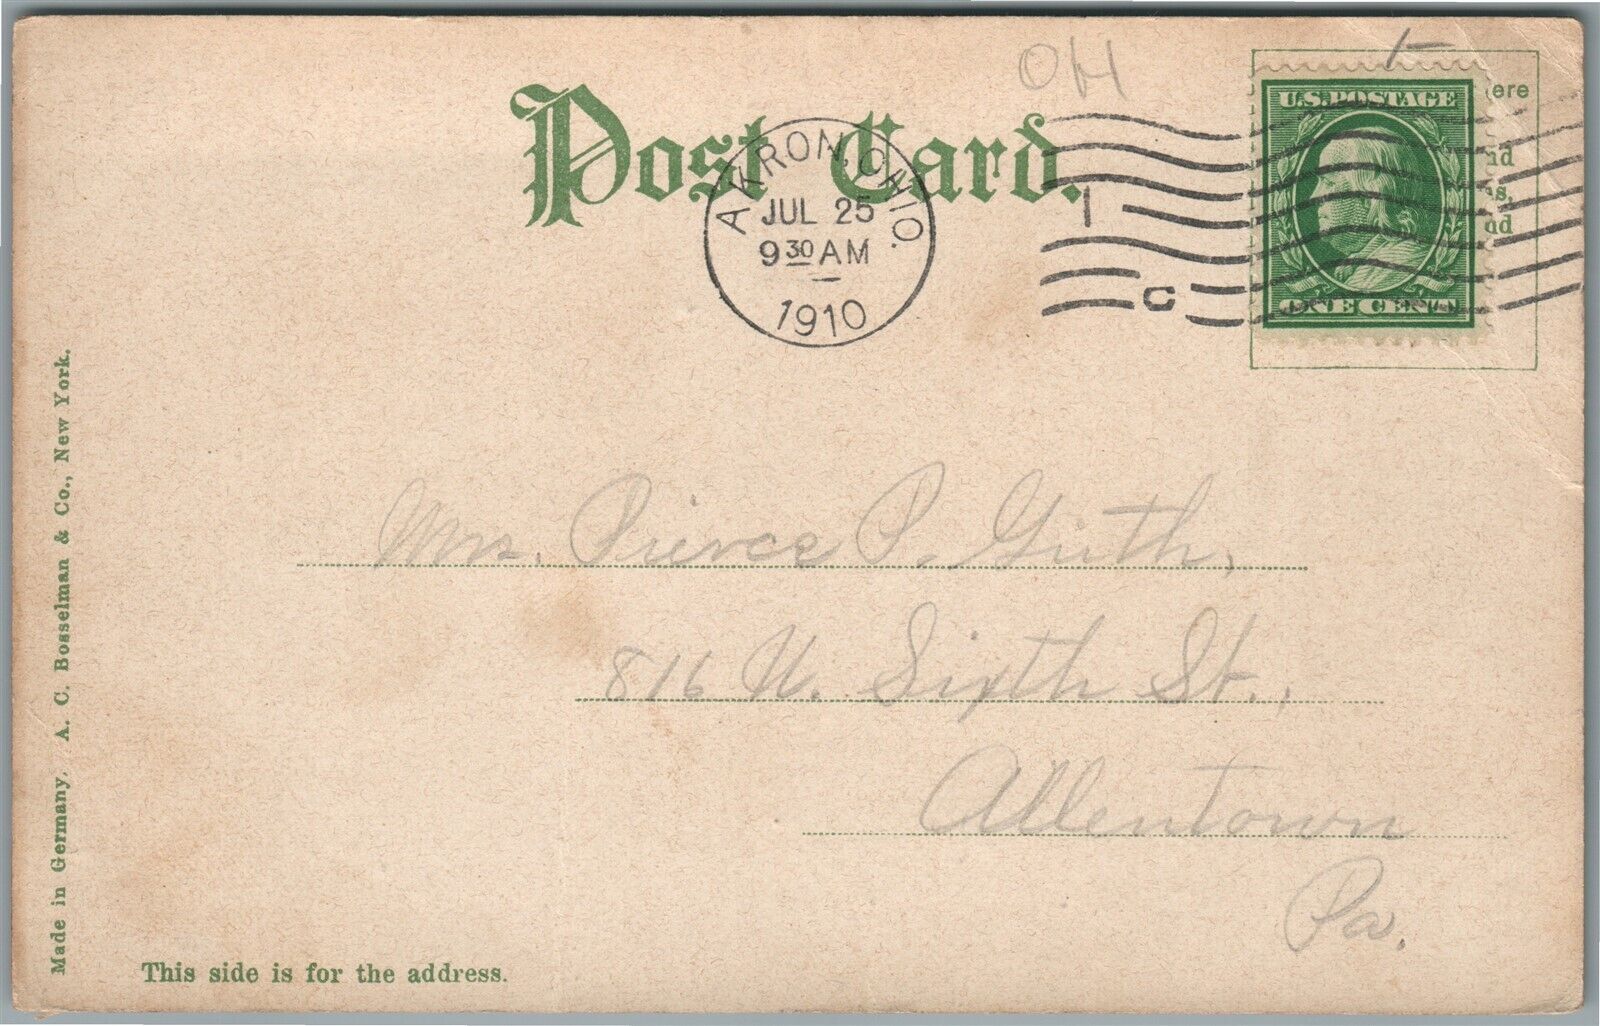 OH
1-
Post Card.
AKRON, OHIO.
JUL 25
9 30 AM
1910
1
C
U.S. POSTAGE
ONE CENT
ere
nd
Mrs. Pierce P. Guth,
816 N. Sixth St.,
Allentown
Pa.
This side is for the address.
Made in Germany. A. C. Bosselman & Co., New York.